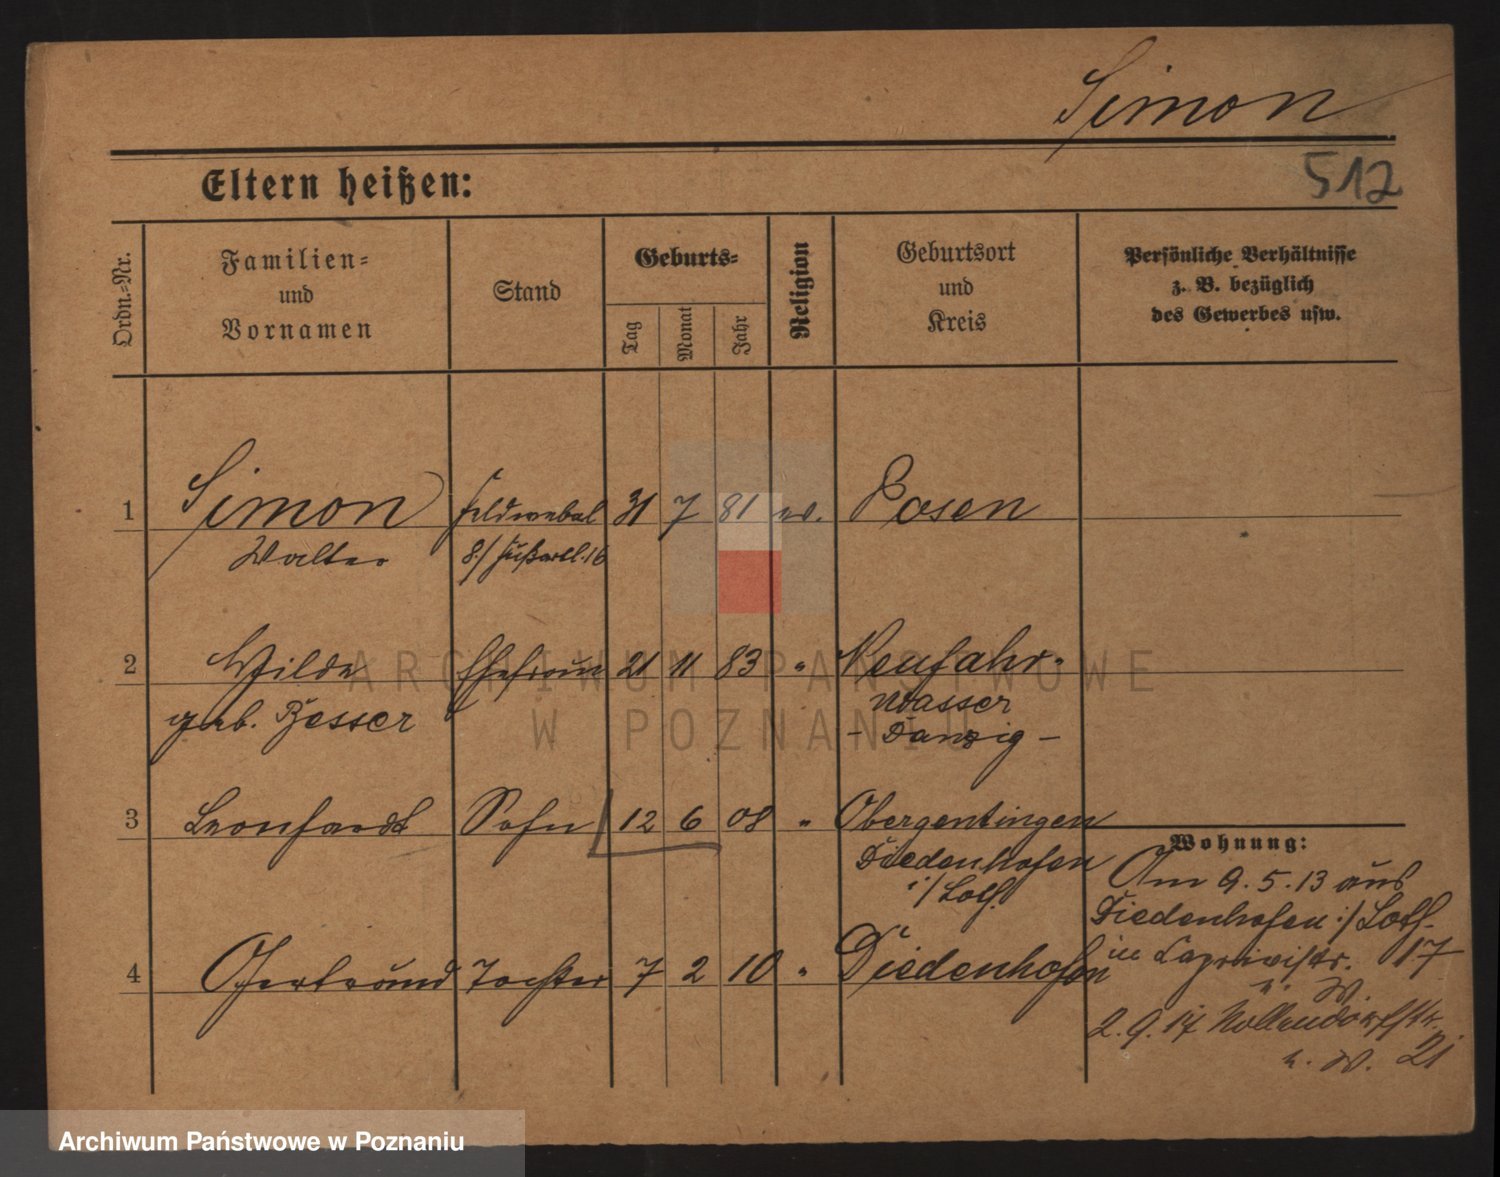 Simon
512
Eltern heißen:
Ordn.-Nr.
Familien-
und
Vornamen
Stand
Geburts-
Tag
Monat
Jahr
Religion
Geburtsort
und
Kreis
Persönliche Verhältnisse
z. B. bezüglich
des Gewerbes usw.
1 Simon Feldwebel 31 7 81 ev. Posen
Walter 8./Fußartl.16
2 Wilde Ehefrau 21 11 83 " Neufahr-
geb. Besser wasser
- Danzig -
3 Leonhardt Sohn 12 6 08 " Obergentingen
Diedenhofen
i/Loth.
4 Gertraud Tochter 7 2 10 " Diedenhofen
Wohnung:
Am 9.5.13 aus
Diedenhofen i/Loth.
in Caprivistr. 17
n. W.
2.9.17 Nollendorfstr.
n. W. 21
ARCHIWUM PAŃSTWOWE
W POZNANIU
Archiwum Państwowe w Poznaniu